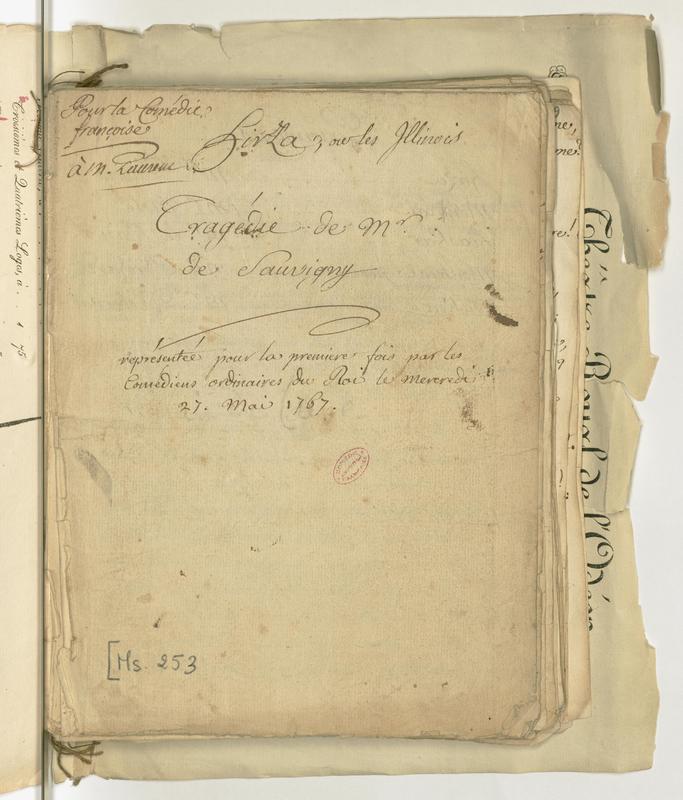 Pour la Comédie
françoise
à M. Laurent
Hirza, ou les Illinois
Tragédie de Mr
de Sauvigny
représentée pour la première fois par les
Comédiens ordinaires du Roi le Mercredi
27. Mai 1767.
[Ms. 253
Troisièmes et Quatrièmes Loges, à . . 1 75
Théâtre Royal de l'Odéon